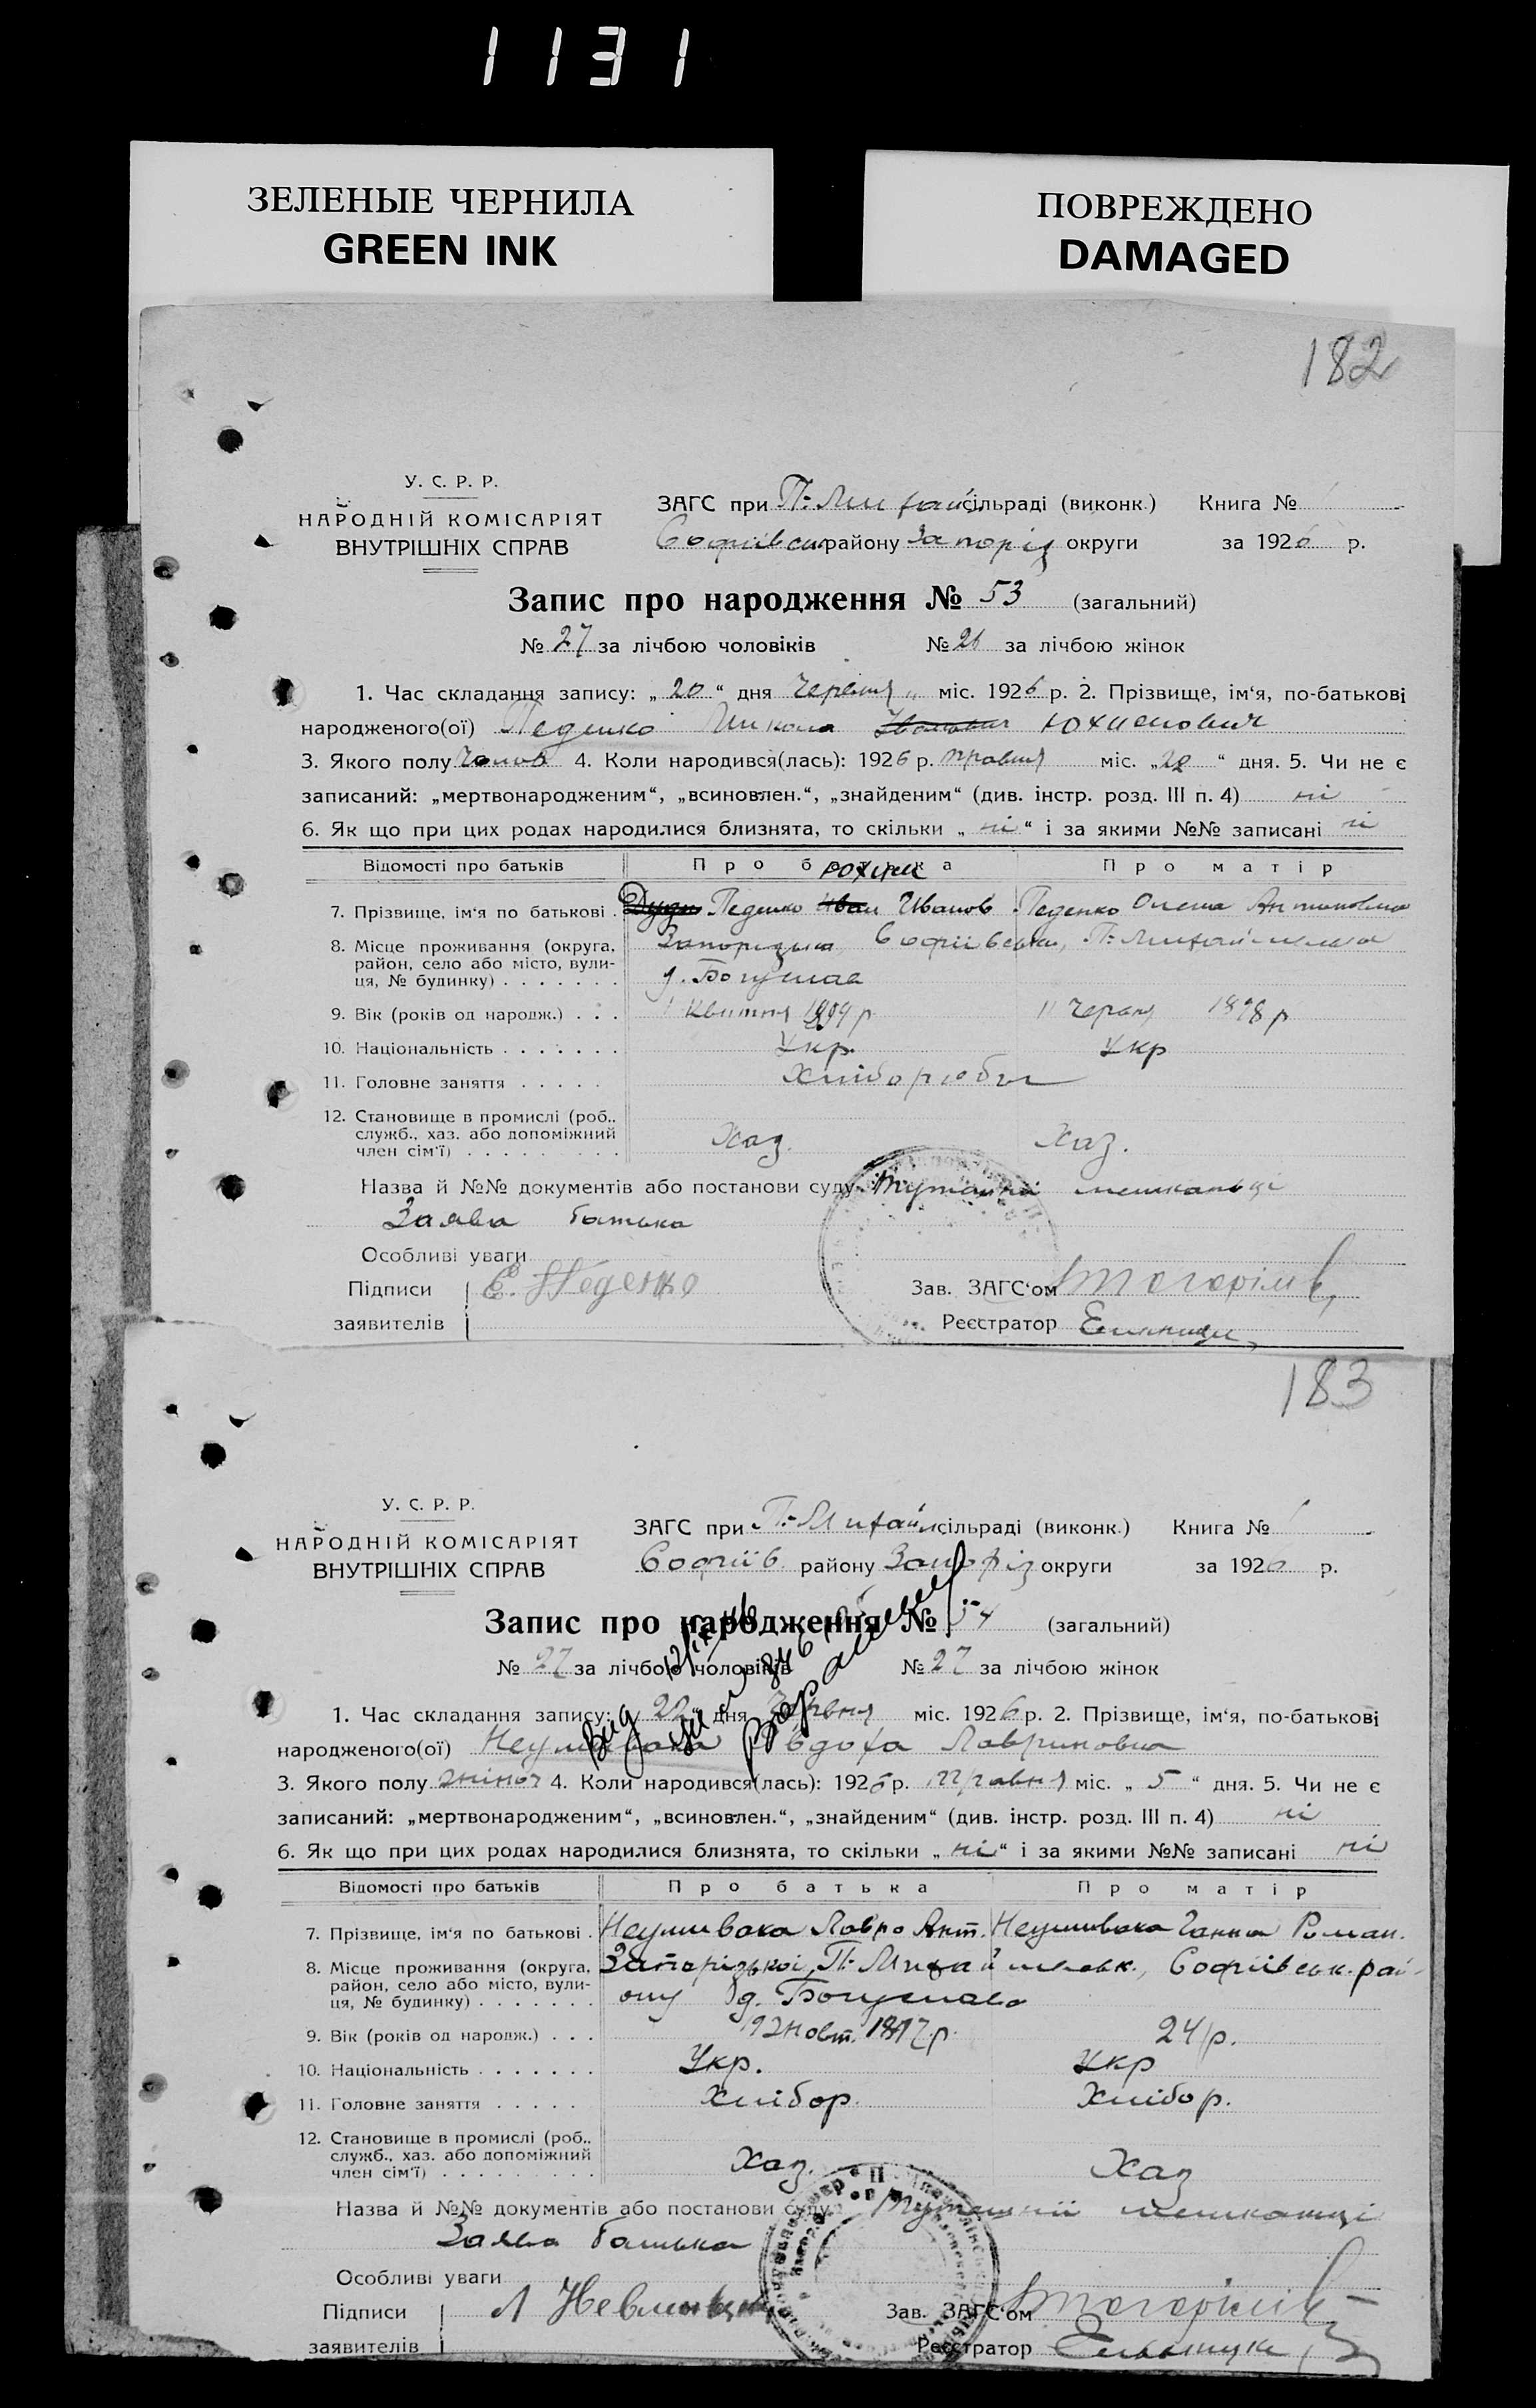 1131
ЗЕЛЕНЫЕ ЧЕРНИЛА
GREEN INK
ПОВРЕЖДЕНО
DAMAGED
182
У. С. Р. Р.
НАРОДНІЙ КОМІСАРІЯТ
ВНУТРІШНІХ СПРАВ
ЗАГС при П.-Михайл сільраді (виконк.) Книга №
Софіївськ району Запоріз округи за 1926 р.
Запис про народження № 53 (загальний)
№ 27 за лічбою чоловіків № 26 за лічбою жінок
1. Час складання запису: „ 20 “ дня Червня міс. 1926 р. 2. Прізвище, ім‘я, по-батькові
народженого(ої) Педенко Микола Іванович Юхимович
3. Якого полу Чолов 4. Коли народився(лась): 1926 р. травня міс. „ 22 “ дня. 5. Чи не є
записаний: „мертвонародженим“, „всиновлен.“, „знайденим“ (див. інстр. розд. III п. 4) ні
6. Як що при цих родах народилися близнята, то скільки „ ні “ і за якими №№ записані ні
Відомості про батьків Про батька Про матір
Юхим
7. Прізвище, ім‘я по батькові . Педенко Иван Иванов Педенко Олена Антиновна
8. Місце проживання (округа, район, село або місто, вулиця, № будинку) . . . . . . . Запорізька Софіївська, П.-Михайлівська
д. Богуслав
9. Вік (років од народж.) . . . Квитня р 11 Черв 1898 р
10. Національність . . . . . . . Укр. Укр
11. Головне заняття . . . . . Хліборобы
12. Становище в промислі (роб., служб., хаз. або допоміжний член сім‘ї) . . . . . . . . . Хаз. Хаз.
Назва й №№ документів або постанови суду Тутешні мешканці
Заява батька
Особливі уваги
Підписи заявителів Е. Педенко
Зав. ЗАГС‘ом
Реєстратор
183
У. С. Р. Р.
НАРОДНІЙ КОМІСАРІЯТ
ВНУТРІШНІХ СПРАВ
ЗАГС при П.-Михайл сільраді (виконк.) Книга №
Софіїв. району Запоріз округи за 1926 р.
Запис про народження № 54 (загальний)
№ 27 за лічбою чоловіків № 27 за лічбою жінок
1. Час складання запису: „ 22 “ дня Червня міс. 1926 р. 2. Прізвище, ім‘я, по-батькові
народженого(ої) Неумивака Євдоха Лавриновна
3. Якого полу жіноч 4. Коли народився(лась): 1926 р. Травня міс. „ 5 “ дня. 5. Чи не є
записаний: „мертвонародженим“, „всиновлен.“, „знайденим“ (див. інстр. розд. III п. 4) ні
6. Як що при цих родах народилися близнята, то скільки „ ні “ і за якими №№ записані ні
Відомості про батьків Про батька Про матір
7. Прізвище, ім‘я по батькові . Неумивака Лавро Ант. Неумивака Ганна Роман.
8. Місце проживання (округа, район, село або місто, вулиця, № будинку) . . . . . . . Запорізької, П.-Михайлівськ., Софіївськ. рай-
ону д. Богуслав
9. Вік (років од народж.) . . . Жовт. р. 24 р.
10. Національність . . . . . . . Укр. Укр
11. Головне заняття . . . . . Хлібор. Хлібор.
12. Становище в промислі (роб., служб., хаз. або допоміжний член сім‘ї) . . . . . . . . . Хаз. Хаз
Назва й №№ документів або постанови суду Тутешнії мешканці
Заява батька
Особливі уваги
Підписи заявителів Л
Зав. ЗАГС‘ом
Реєстратор